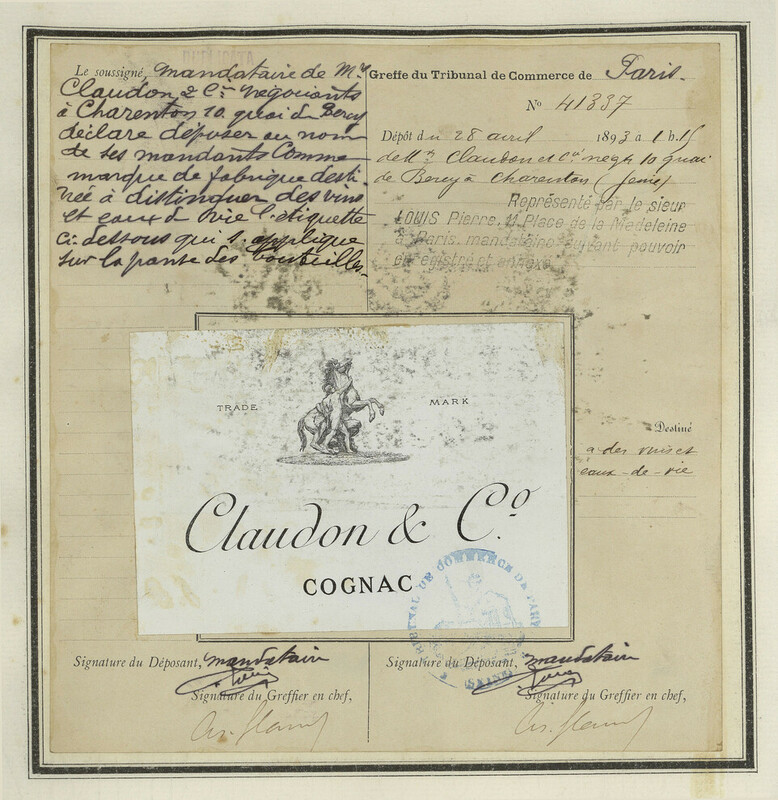 Le soussigné, mandataire de Mrs
Claudon & Cie négociants
à Charenton 10 quai de Bercy
déclare déposer au nom
de ses mandants comme
marque de fabrique desti-
née à distinguer des vins
et eaux de vie l'etiquette
ci-dessous qui s'applique
sur la panse des bouteilles.
Greffe du Tribunal de Commerce de Paris.
No 41337
Dépôt du 28 avril 1893 a 1 h. 15
de Mrs Claudon et Cie négts 10 quai
de Bercy à Charenton (Seine)
Représenté par le sieur
LOUIS Pierre, 11, Place de la Madeleine
à Paris, mandataire suivant pouvoir
enregistré et annexé
TRADE MARK
Claudon & Co.
COGNAC
Destiné
a des vins et
eaux-de-vie
TRIBUNAL DE COMMERCE DE PARIS
(SEINE)
Signature du Déposant, mandataire
Louis
Signature du Greffier en chef,
Signature du Déposant, mandataire
Louis
Signature du Greffier en chef,